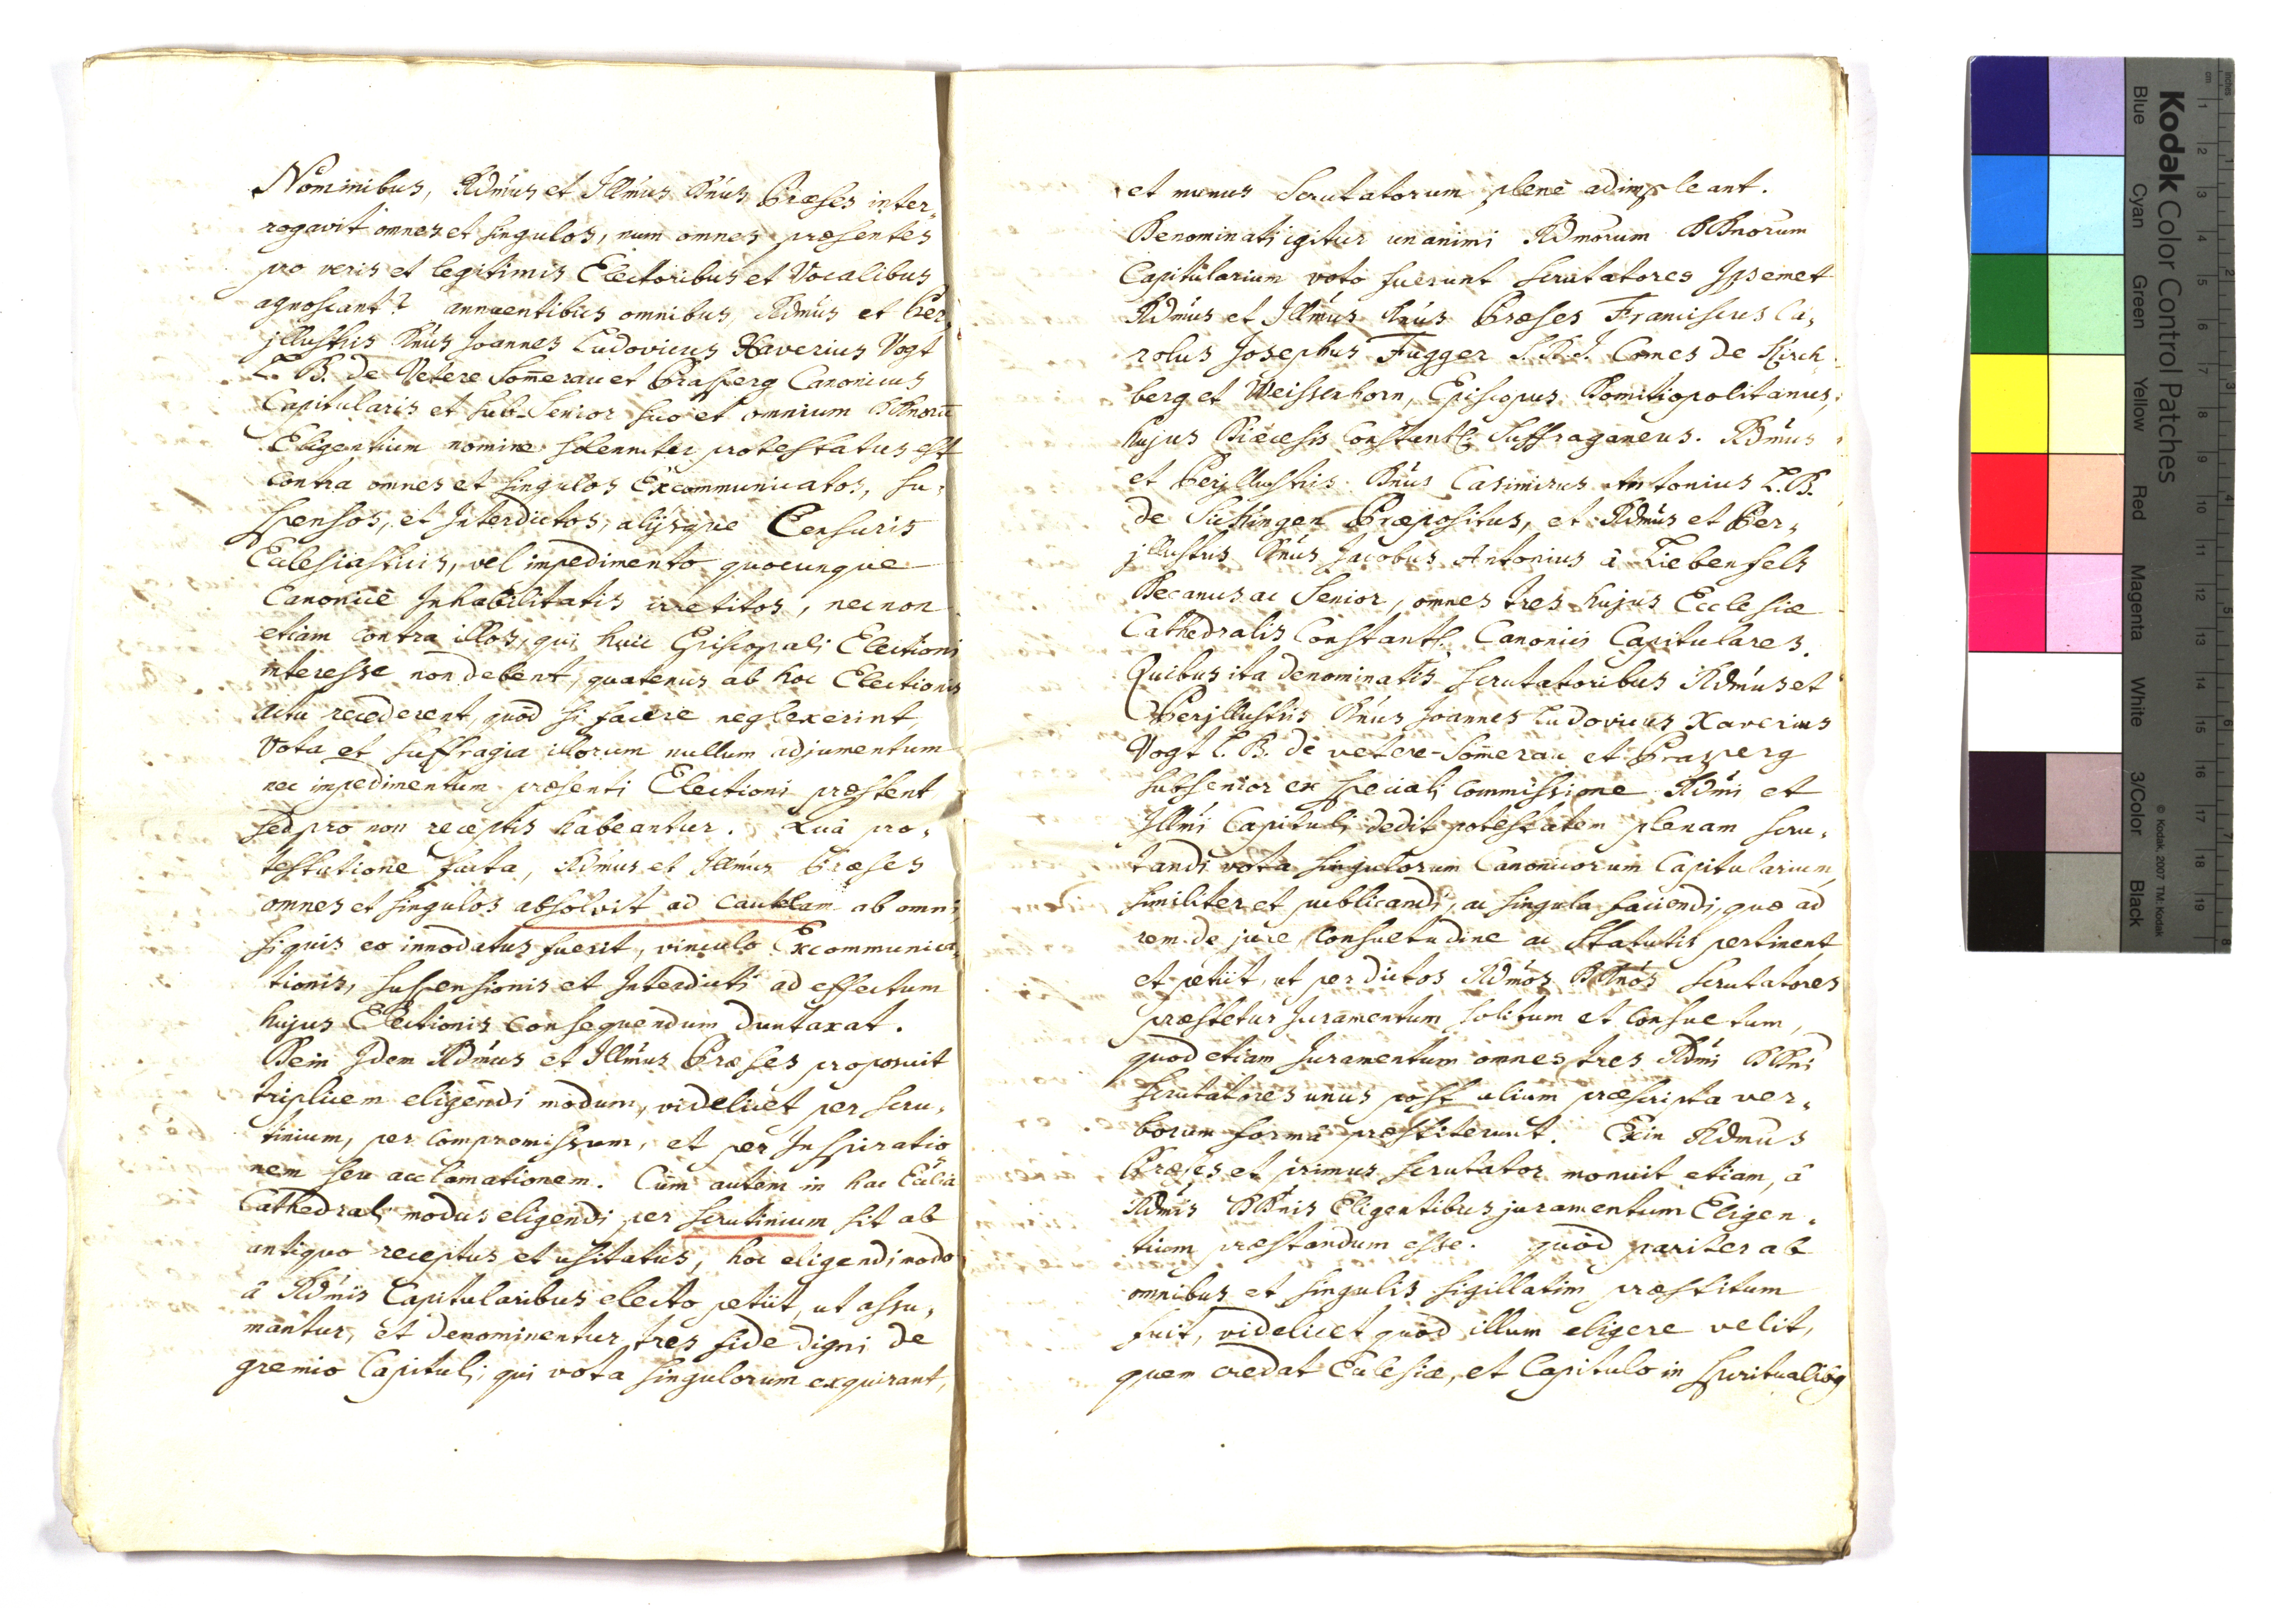 Nominibus, Rd̃mus et Ill̃mus Dñus Præses inter„
rogavit omnes et singulos, num omnes præsentes
pro veris et legitimis Electoribus et Vocalibus
agnoscant? annuentibus omnibus, Rd̃mus et Per„
jllustris Dñus Joannes Ludovicus Xaverius Vogt
L. B. de Vetere Som̃erau et Prasperg Canonicus
Capitularis et Sub-Senior suo et omnium DDnorũ
Eligentium nomine solenniter protestatus est
contra omnes et singulos Excommunicatos, su„
spensos, et Interdictos, alijsque Censuris
Ecclesiasticis, vel impedimento quocunque
Canonicè Inhabilitatis irretitos, nec non
etiam contra illos, qui huic Episcopali Electioni
interesse non debent, quatenus ab hoc Electionis
actu recederent, quòd si facere neglexerint,
Vota et suffragia illorum nullum adjumentum
nec impedimentum præsenti Electioni præstent
sed pro non receptis habeantur. Quâ pro„
testatione facta, Rd̃mus et Ill̃mus Præses
omnes et singulos absolvit ad cautelam ab omni
si quis eo innodatus fuerit, vinculo Excommunica„
tionis, suspensionis et Interdicti ad effectum
hujus Electionis consequendum duntaxat.
Dein Idem Rd̃mus et Ill̃mus Præses proposuit
triplicem eligendi modum, videlicet per scru„
tinium, per compromissum, et per Inspiratio
nem seu acclamationem. Cùm autem in hac Ecc̃lia
Cathedrali modus eligendi per scrutinium sit ab
antiquo receptus et usitatus, hoc eligendi modo
à Rd̃mis Capitularibus electo petiit, ut assu„
mantur, et denominentur tres fide digni de
gremio Capituli, qui vota singulorum exquirant,
et munus Scrutatorum plenè adimpleant.
Denominati igitur unanimi Rdm̃orum DDnorum
Capitularium voto fuerunt scrutatores Ipsemet
Rd̃mus et Ill̃mus Dñus Præses Franciscus Ca„
rolus Josephus Fugger S. R. I. Comes de Kirch
berg et Weissenhorn, Episcopus Domitiopolitanus,
hujus Diœcesis Constantl: Suffraganeus. Rd̃mus
et Perjllustris Dñus Casimirus Antonius L. B.
de Sickingen Præpositus, et Rd̃mus et Per„
jllustris Dñus Jacobus Antonius à Liebenfels
Decanus ac Senior, omnes tres hujus Ecclesiæ
Cathedralis Constantl. Canonici Capitulares.
Quibus ita denominatis scrutatoribus Rd̃mus et
Perjllustris Dñus Joannes Ludovicus Xaverius
Vogt L. B. de vetere-Som̃erau et Prasperg
subsenior ex speciali Commissione Rd̃mi et
Ill̃mi Capituli dedit potestatem plenam scru„
tandi vota singulorum Canonicorum Capitularium,
similiter et publicandi, ac singula faciendi, quæ ad
rem de jure, consuetudine ac Statutis pertinent,
et petiit, ut per dictos Rd̃mos DDños Scrutatores
præstetur Juramentum solitum et consuetum,
quod etiam Juramentum omnes tres Rd̃mi DDñi
scrutatores unus post alium præscripta ver„
borum forma præstiterunt. Exin Rdm̃us
Præses et primus scrutator monuit etiam, â
Rd̃mis DDñis Eligentibus juramentum Eligen„
tium præstandum esse. quòd pariter ab
omnibus et singulis sigillatim præstitum
fuit, videlicet quòd illum eligere velit,
quem credat Ecclesiæ, et Capitulo in spiritualibq
Kodak Color Control Patches
Blue Cyan Green Yellow Red Magenta White 3/Color Black
© Kodak, 2007 TM: Kodak
cm 1 2 3 4 5 6 7 8 9 10 11 12 13 14 15 16 17 18 19
inches 1 2 3 4 5 6 7 8